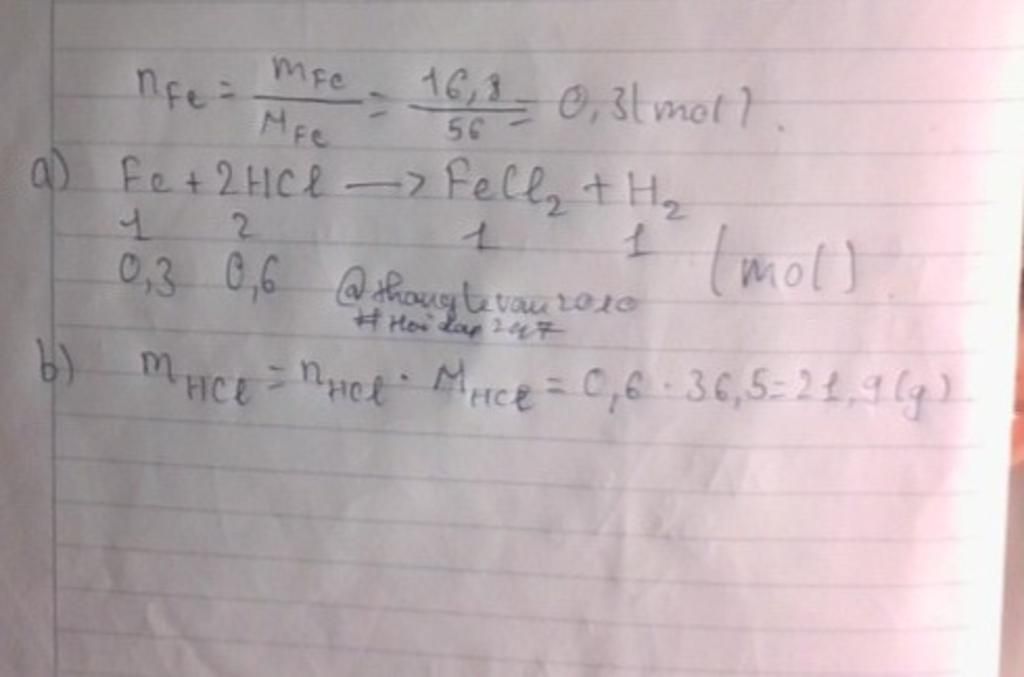 nFe = mFe/MFe = 16,8/56 = 0,3(mol).
a) Fe + 2HCl → FeCl₂ + H₂
1 2 1 1 (mol)
0,3 0,6
@thanglevan2010
# Hoidap247
b) mHCl = nHCl . MHCl = 0,6 . 36,5 = 21,9(g)